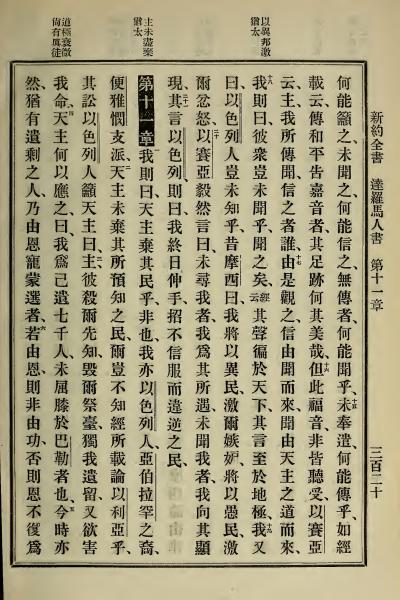 新約全書　達羅馬人書　第十一章　三百二十
以異邦激
猶太
主未盡棄
猶太
道極衰微
尚有眞徒
何能籲之、未聞之何能信之、無傳者何能聞乎、十五未奉遣何能傳乎、如經
載云、傳和平告嘉音者、其足跡何其美哉、十六但此福音、非皆聽受、以賽亞
云、主、我所傳聞、信之者誰、十七由是觀之、信由聞而來、聞由天主之道而來、
十八我則曰、彼衆豈未聞乎、聞之矣、經云其聲徧於天下、其言至於地極、十九我又
曰、以色列人豈未知乎、昔摩西曰、我將以異民激爾嫉妒、將以愚民激
爾忿怒、二十以賽亞毅然言曰、未尋我者、我爲其所遇、未聞我者、我向其顯
現、二十一其言以色列則曰、我終日伸手、招不信服而違逆之民、
第十一章　一我則曰、天主棄其民乎、非也、我亦以色列人、亞伯拉罕之裔、
便雅憫支派、二天主未棄其所預知之民、爾豈不知經所載論以利亞乎、
其訟以色列人籲天主曰、三主、彼殺爾先知、毀爾祭臺、獨我遺留、又欲害
我命、四天主何以應之、曰、我爲己遺七千人、未屈膝於巴勒者也、五今時亦
然、猶有遺剩之人、乃由恩寵蒙選者、六若由恩則非由功、否則恩不復爲